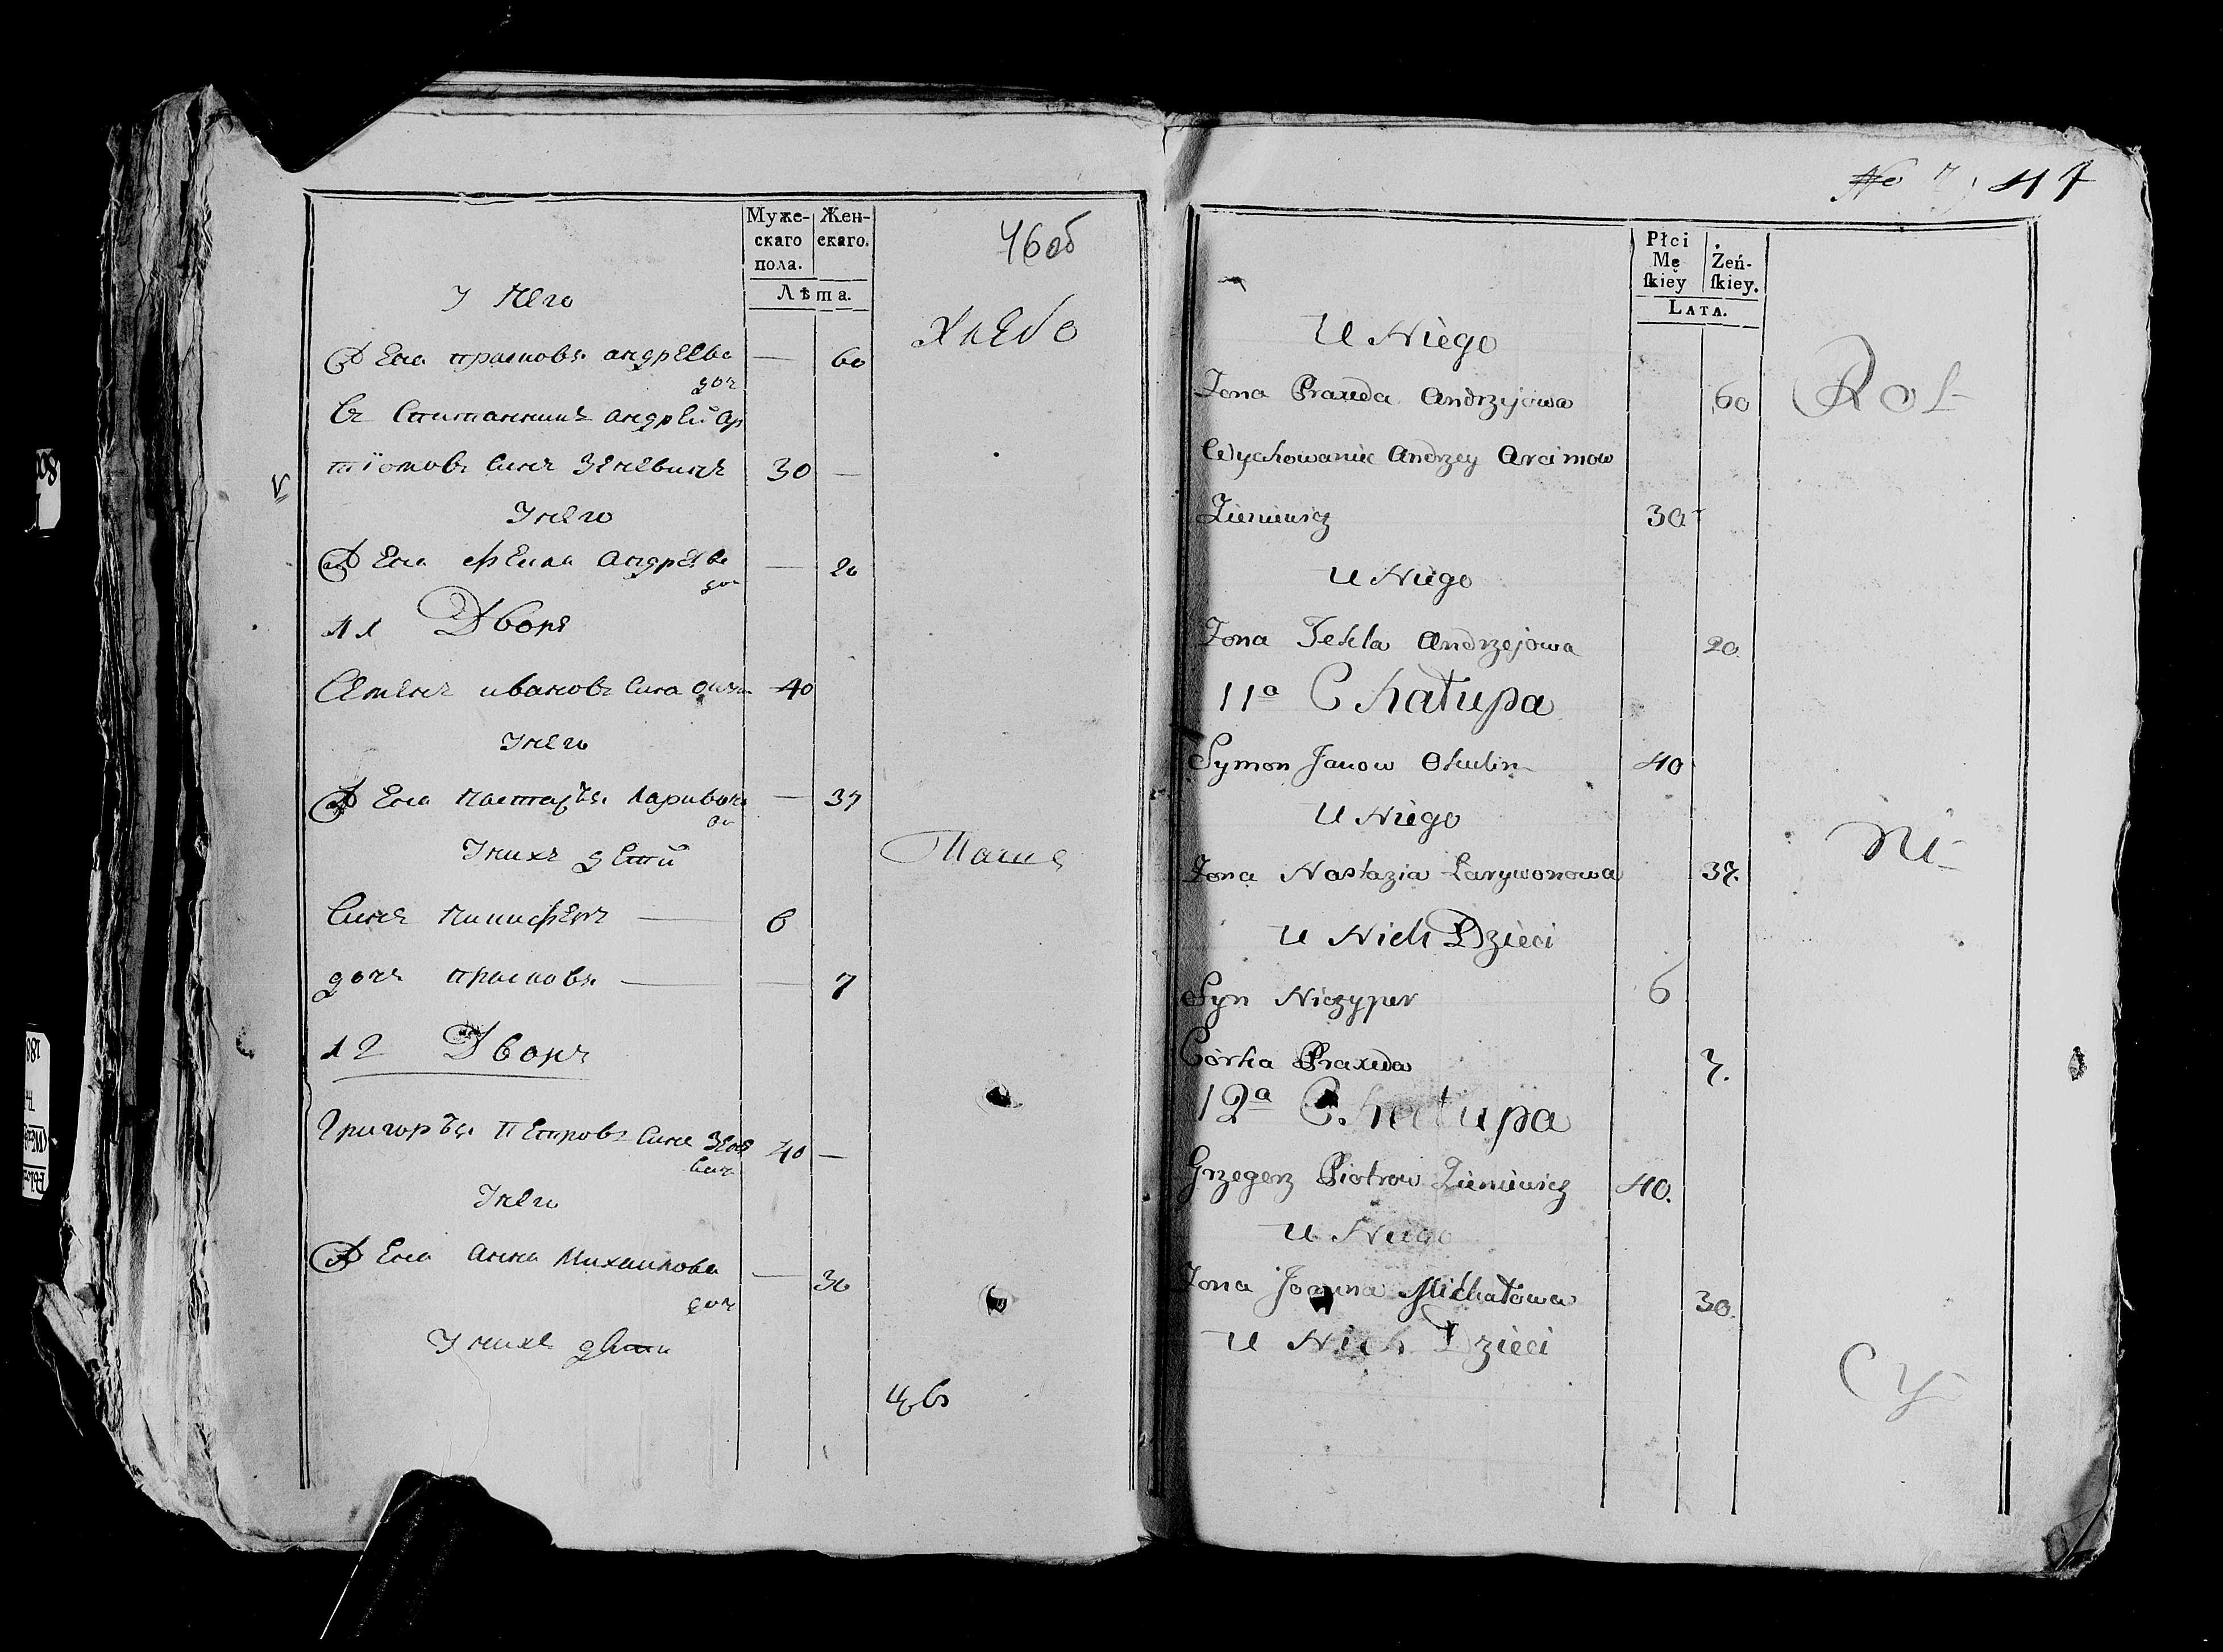 Муже-
скаго
пола.
Жен-
скаго.
Лѣта.
46об
У него
Жена прасковя андреева
доч
60
Хлебо
андрей ар
тіомовъ синъ Зеневичъ 30 —
У него
Жена Фекла андреева
доч
— 20
11 Дворъ
Семенъ ивановъ сина 40
У него
Жена настасъя ларивона
— 37
У нихъ детй
Паше
Синъ ничиферъ — 6
дочъ прасковя — — 7
12 Дворъ
Григоръя Петровъ Сине Зене
вич
40 —
У него
Жена анна михаилова
доч
— 30
У нихъ дети
цъ
№ 7 47
Płci
Mę
ſkiey
Żeń-
ſkiey.
LATA.
U Niego
Żona Praxeda Andrzejowa 60
Rol-
Wychowaniec Andrzey Arcimow
Zieniewicz 30
U Niego
Żona Tekla Andrzejowa 20
11a Chałupa
Symon Janow Okulin 40
U Niego
ni-
Żona Nastazia Larywonowa 37.
U Nich Dzieci
Syn Niczyper 6
Córka Praxeda 7.
12a Chałupa
Grzegorz Piotrow Zieniewicz 40.
U Niego
Żona Joanna Michałowa 30.
U Nich Dzieci
cy